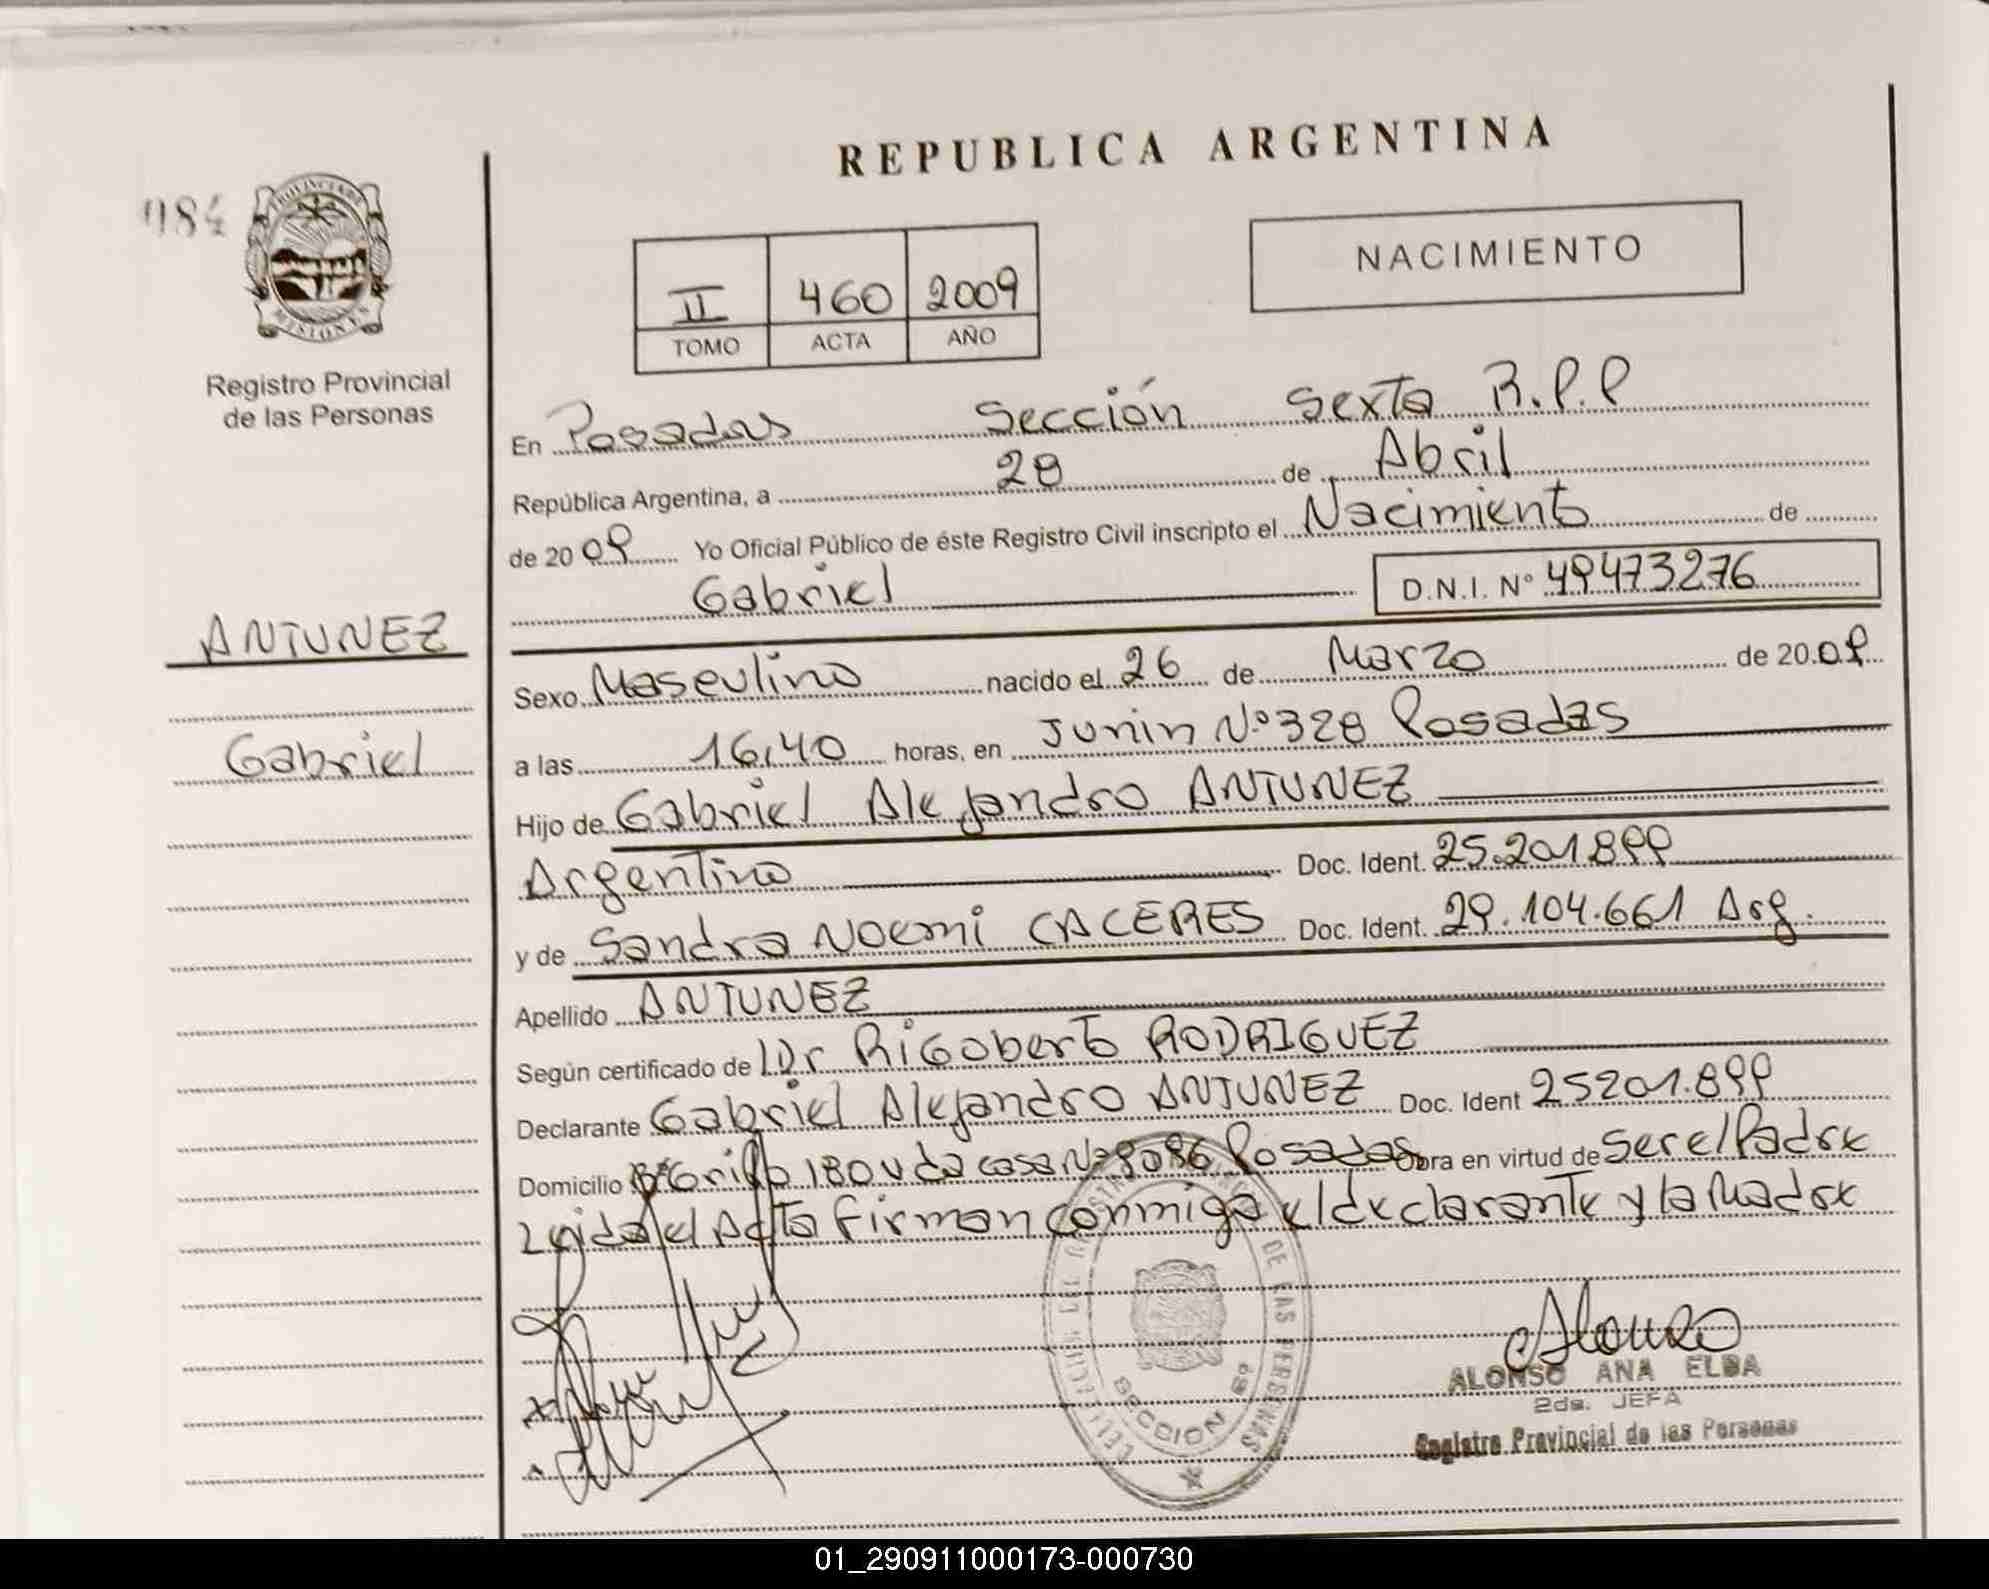 REPUBLICA ARGENTINA
984
PROVINCIA DE
MISIONES
Registro Provincial
de las Personas
II 460 2009
TOMO ACTA AÑO
NACIMIENTO
En Posadas Sección Sexta R.P.P
República Argentina, a 28 de Abril
de 2009 Yo Oficial Público de éste Registro Civil inscripto el Nacimiento de
Gabriel D.N.I. Nº 49473276
ANTUNEZ
Gabriel
Sexo Masculino nacido el 26 de Marzo de 2009
a las 16,40 horas, en Junin Nº 328 Posadas
Hijo de Gabriel Alejandro ANTUNEZ
Argentino Doc. Ident. 25.201.899
y de Sandra Noemi CACERES Doc. Ident. 29.104.661 Arg.
Apellido ANTUNEZ
Según certificado de Dr Rigoberto RODRIGUEZ
Declarante Gabriel Alejandro ANTUNEZ Doc. Ident 25201.899
Domicilio 180 Vda casa Nº Posadas Obra en virtud de Ser el Padre
Leida el Acta firman conmigo el declarante y la Madre
DE LAS PERSONAS
SECCION 6ª
Alonso
ALONSO ANA ELBA
2da. JEFA
Registro Provincial de las Personas
01_290911000173-000730